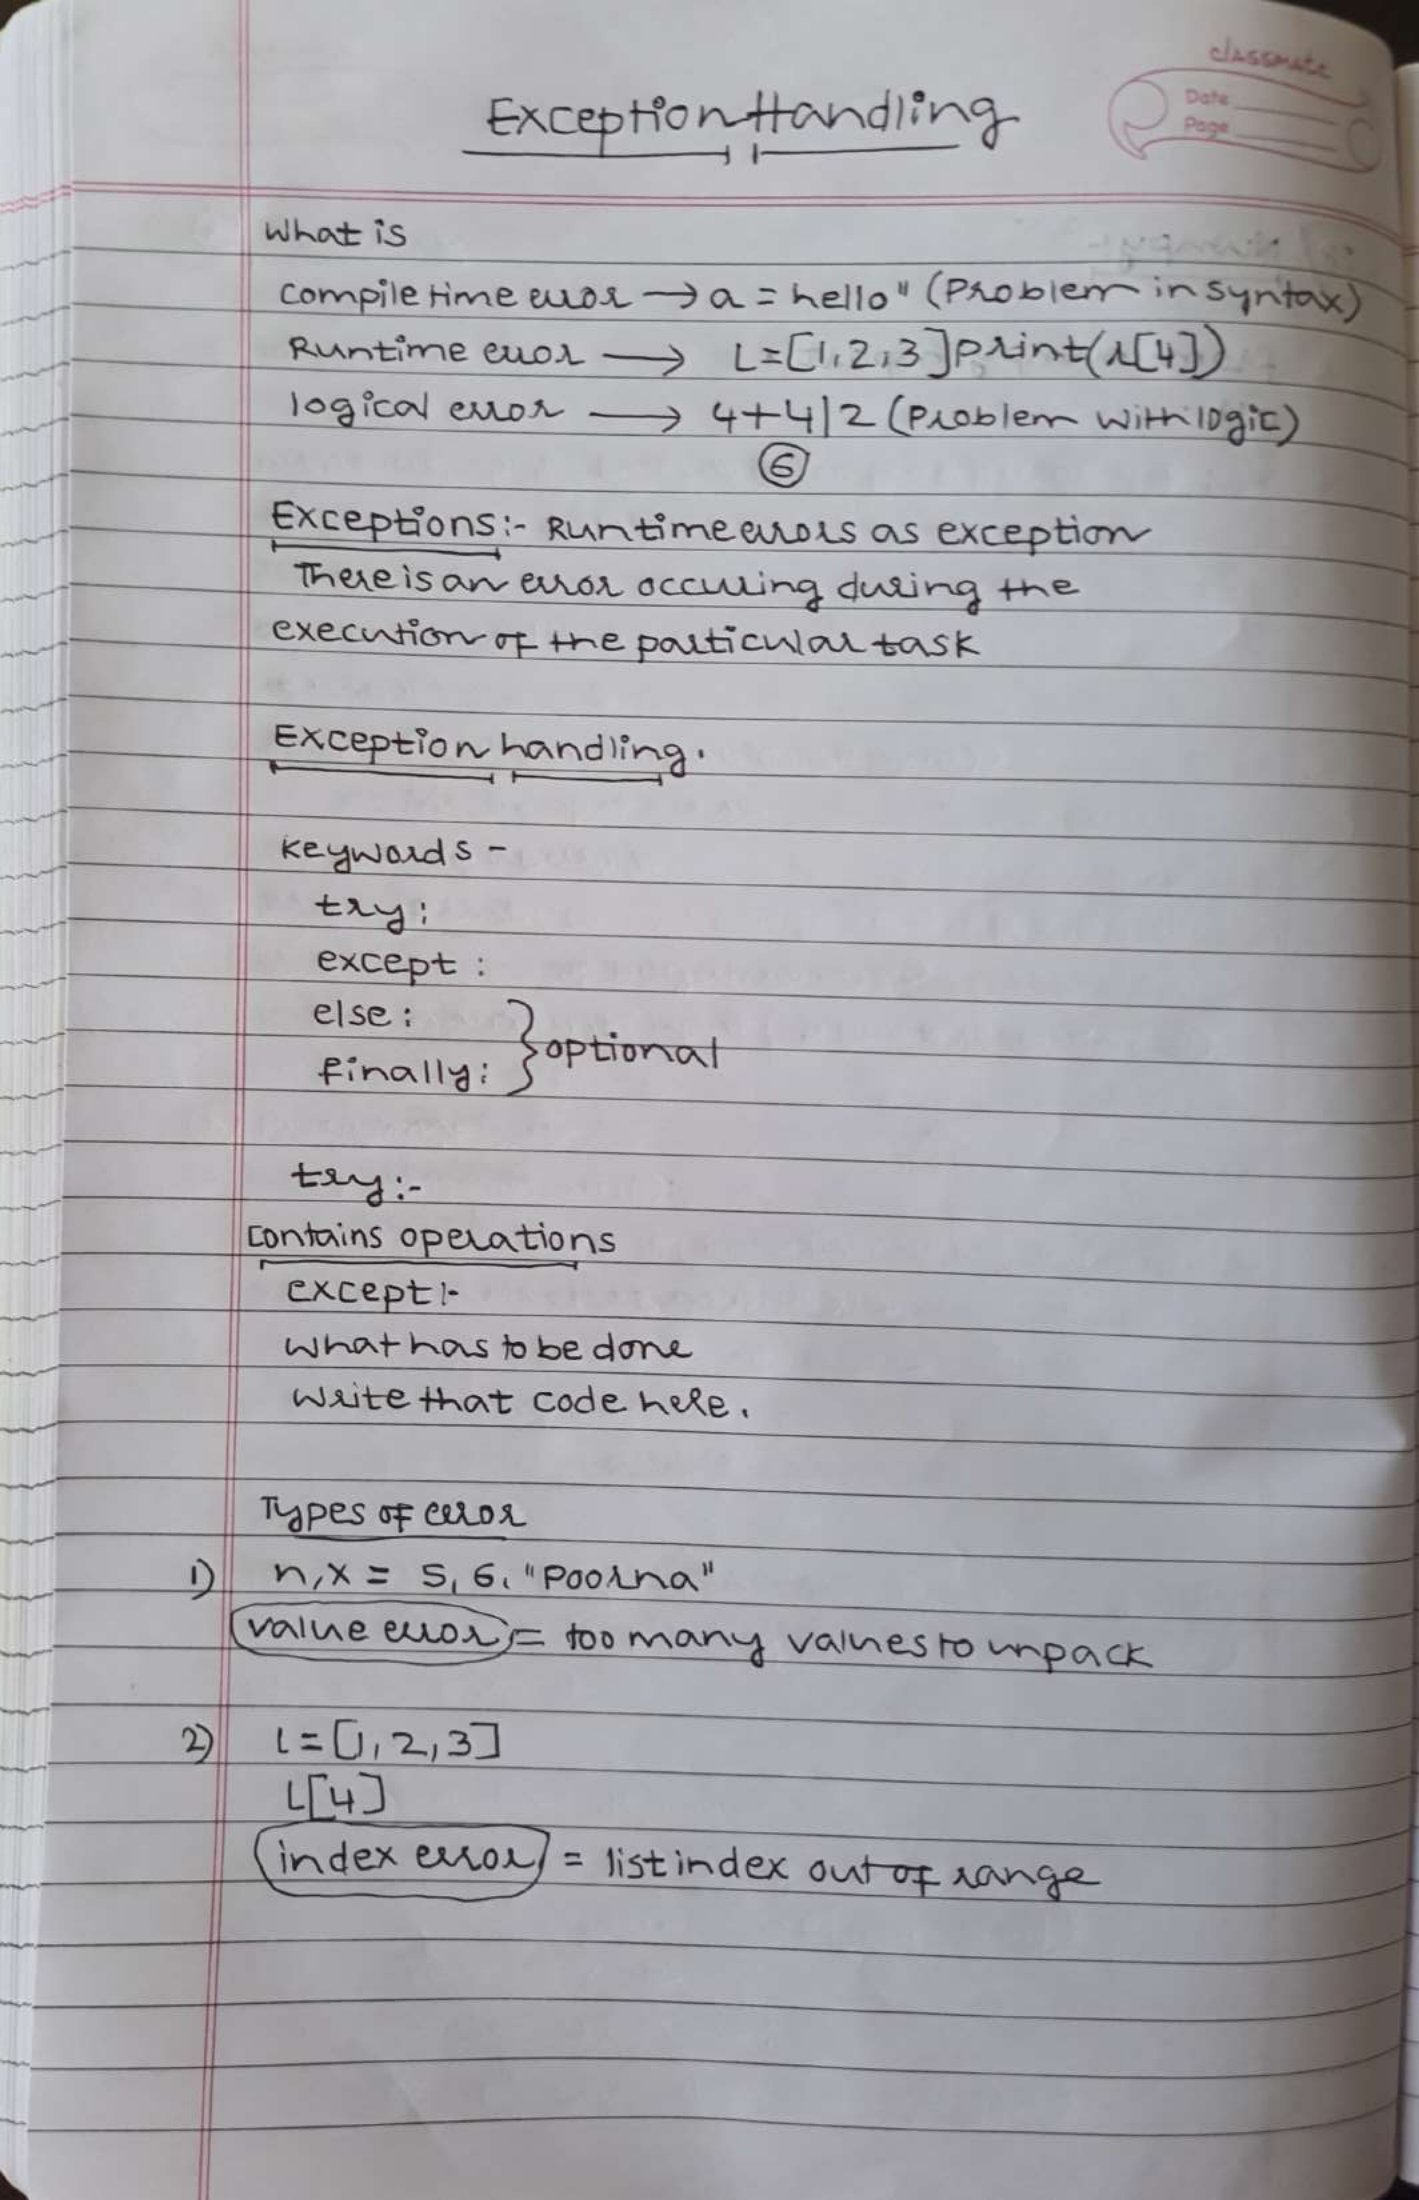 classmate
Date
Page
Exception Handling
What is
compile time error → a = hello" (Problem in syntax)
Runtime error → L=[1,2,3] print(l[4])
logical error → 4+4/2 (Problem with logic)
6
Exceptions:- Runtime errors as exception
There is an error occuring during the
execution of the particular task
Exception handling.
keywords -
try:
except :
else:
finally: } optional
try:-
Contains operations
except:-
what has to be done
write that code here.
Types of error
1) n,x = 5, 6, "Poorna"
value error = too many values to unpack
2) l = [1, 2, 3]
L[4]
index error = list index out of range